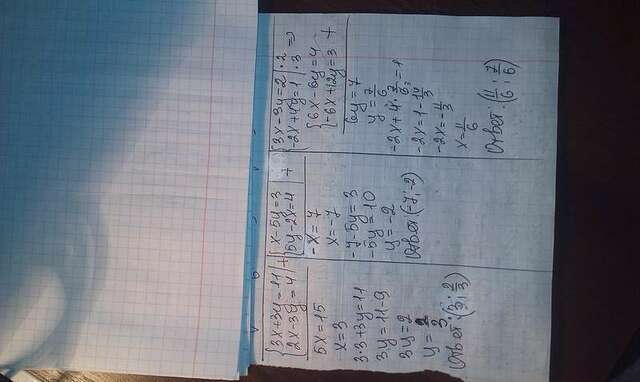 {3x+3y=11 | +
{2x-3y=4
5x=15
x=3
3·3+3y=11
3y=11-9
3y=2
y=2/3
Ответ: (3; 2/3)
{x-5y=3
{5y-2x=4 | +
-x=7
x=-7
-7-5y=3
-5y=10
y=-2
Ответ (-7;-2)
{3x-3y=2 | ·2
{-2x+4y=1 | ·3 =>
{6x-6y=4
{-6x+12y=3 +
6y=7
y=7/6
-2x+4·7/6=1
-2x=1-14/3
-2x=-11/3
x=11/6
Ответ: (11/6; 7/6)